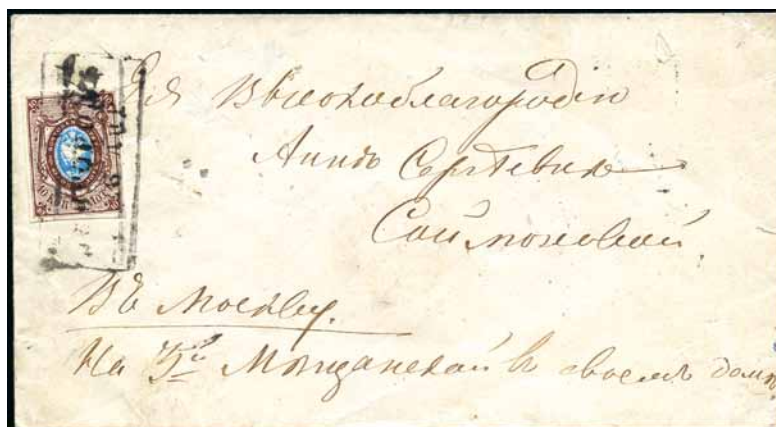 Ея Высокоблагородію
Аннѣ Сергѣевнѣ
Соймоновой.
Въ Москву.
На Мѣщанской въ своемъ домѣ